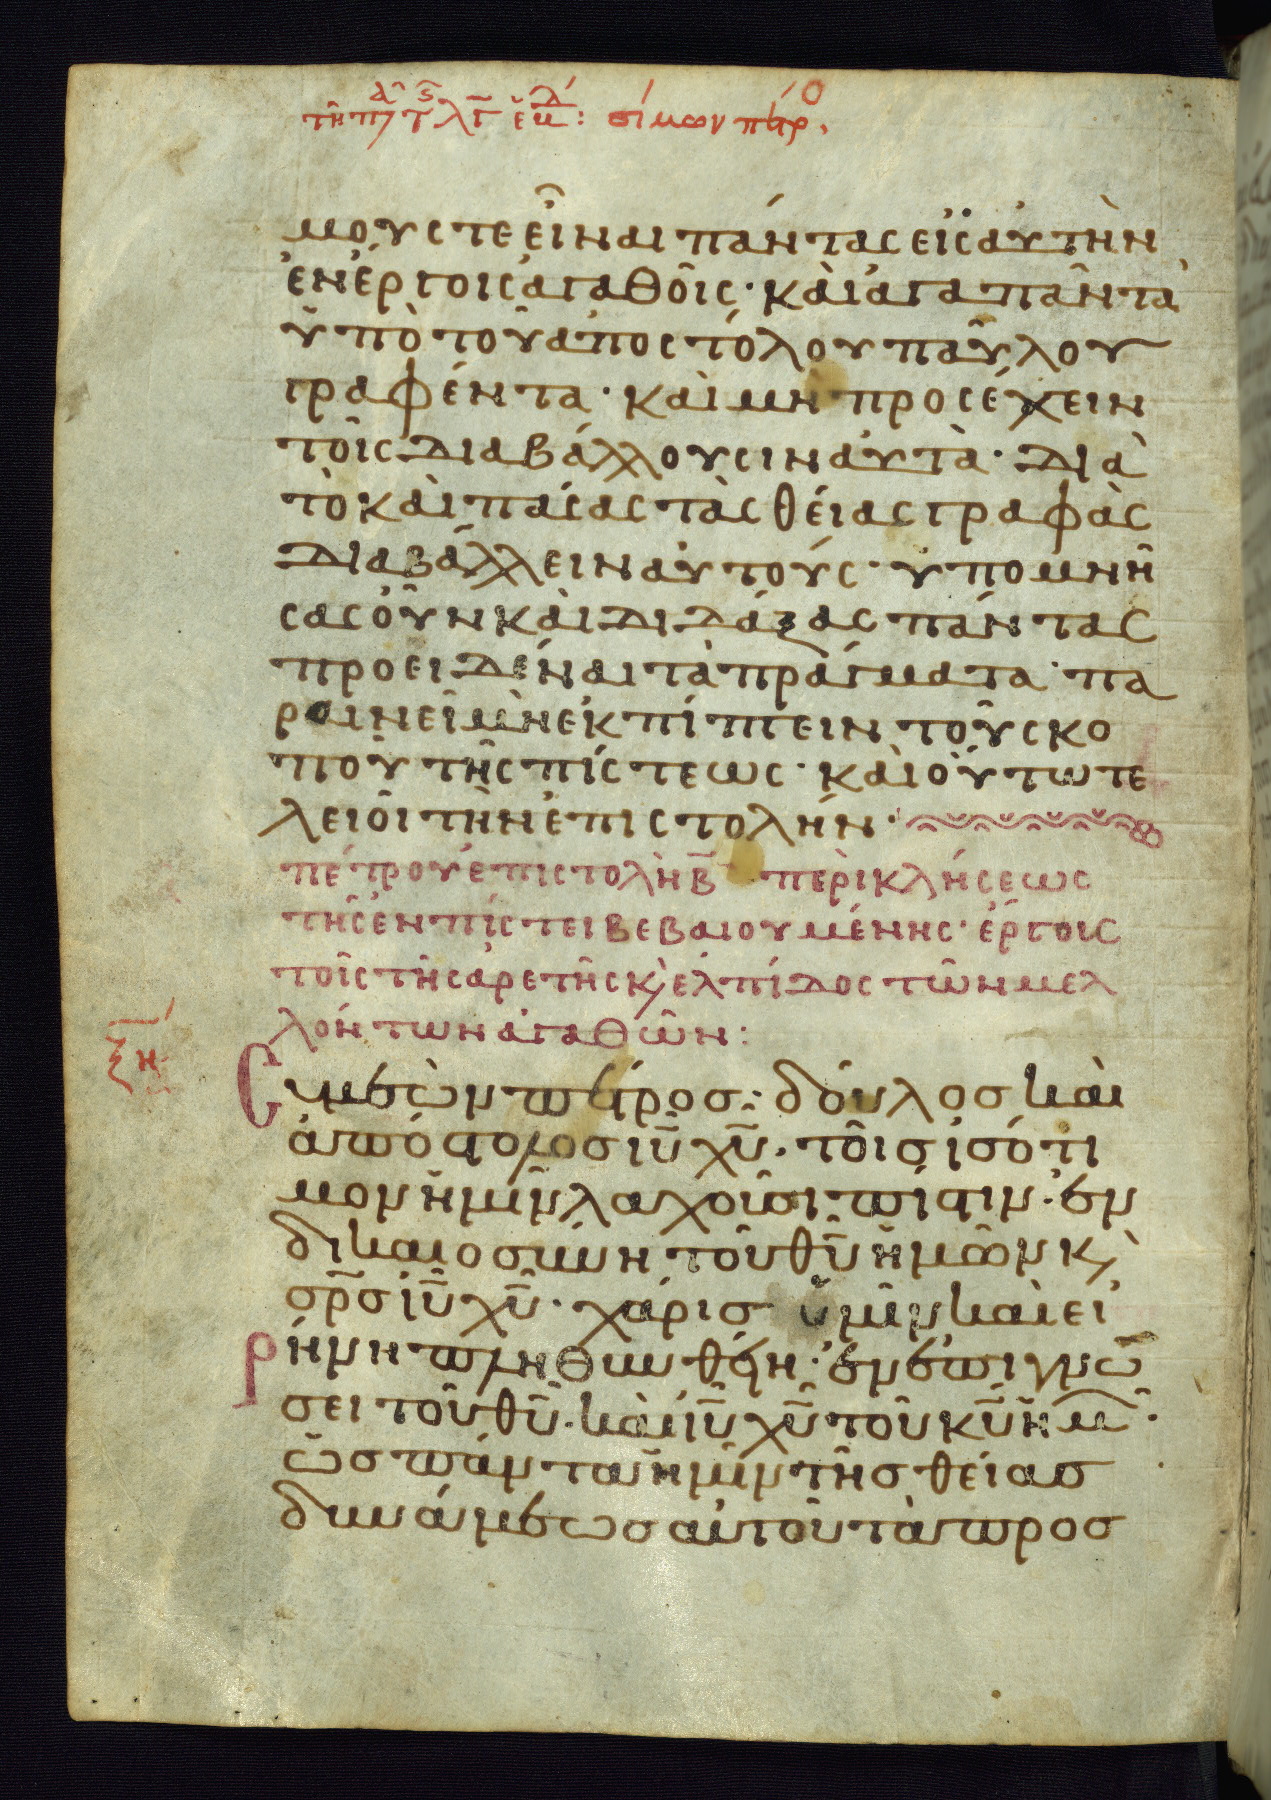 σίμων πέτρο,
μουστε εἶναι πάντας εἰς αὐτὴν
ἐν ἔργοις ἀγαθοῖς· καὶ ἀγαπᾶν τὰ
ὑπὸ τοῦ ἀποστόλου παύλου
γραφέντα· καὶ μὴ προσέχειν
τοῖς διαβάλλουσιν αὐτὰ· διὰ
τὸ καὶ πάσας τὰς θείας γραφὰς
διαβάλλειν αὐτούς· ὑπομνή
σας οὖν καὶ διδάξας πάντας
προειδέναι τὰ πράγματα· πα
ραινεῖ μὴ ἐκπίπτειν τοῦ σκο
ποῦ τῆς πίστεως· καὶ οὕτω τε
λειοῖ τὴν ἐπιστολήν·
πέτρου ἐπιστολὴ β̄ περὶ κλήσεως
τῆς ἐν πίστει βεβαιουμένης· ἔργοις
τοῖς τῆς ἀρετῆς κ̀ ἐλπίδος τῶν μελ
λόντων ἀγαθῶν:
ξη
Συμεὼν πέτρος· δοῦλος καὶ
ἀπόστολος ιῦ χῦ· τοῖς ἰσότι
μον ἡμῖν λαχοῦσι πίστιν· ἐν
δικαιοσύνη τοῦ θῦ ἡμῶν κ̀
σρ̄σ ιῦ χῦ· χάρις ὑμῖν καὶ εἰ
ρήνη πληθυνθείη· ἐν ἐπιγνώ
σει τοῦ θῦ· καὶ ιῦ χῦ τοῦ κῦ ἡμ̑·
ὡς πάντα ἡμῖν τῆς θείας
δυνάμεως αὐτοῦ τὰ προς